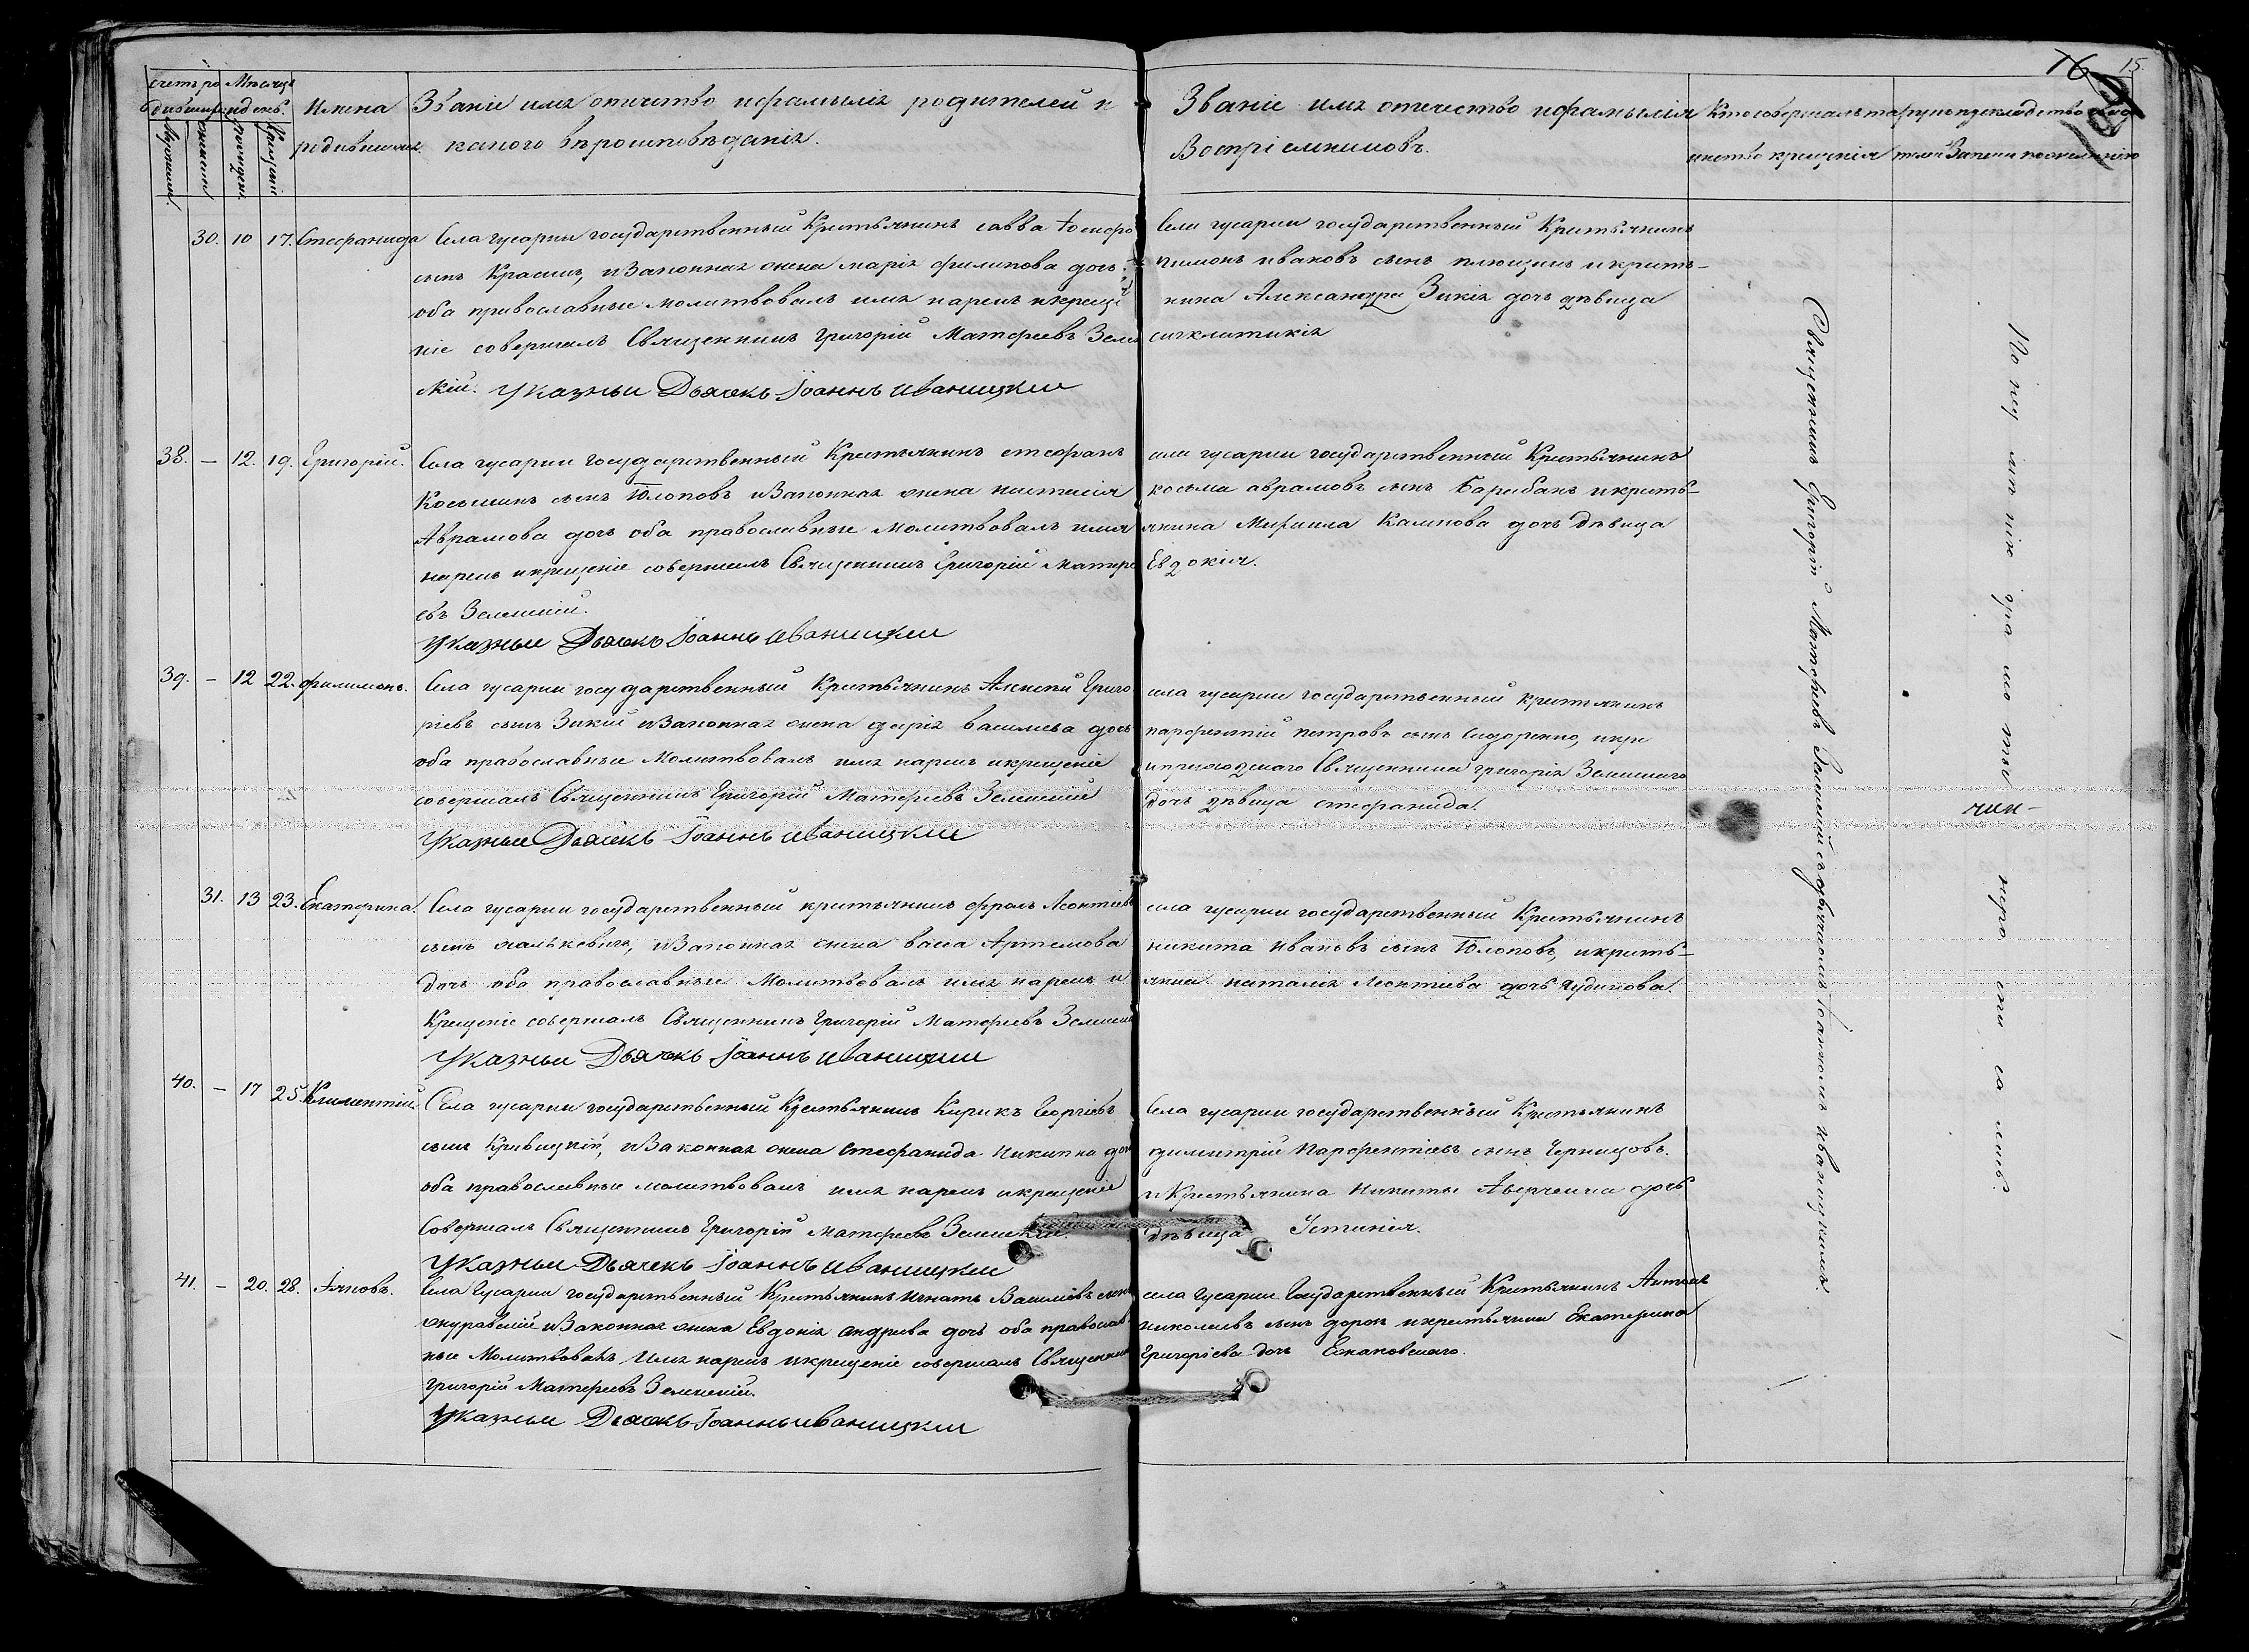 15.
счетъ ро Мѣсяцъ
идень.
Мужеска.
женска
рожденіе
Крещеніе
Имена
родившихся.
Званіе имя отечество ифамылія родителей и
какого вѣроисповѣданія.
Званіе имя отечество ифамылія
Воспріемниковъ.
Ктосовершалъ та
инство крещенія
рукоприкладство
30. 10 17. Стефанида
Села гусарки государственный Крестьянинъ савва
сынъ Красинъ, иЗаконная жена марія филипова дочь
оба православные молитвовалъ имя нарекъ икреще
ніе совершалъ Священникъ Григорій Матфеевъ Зеле
скій. Указныи Дьячекъ Іоаннъ иваницкии
Села гусарки государственный Крестьянинъ
пимонъ ивановъ сынъ икресть-
нина Александра Зикія дочь дѣвица
сигклитикія
38. — 12. 19. Григорій.
Села гусарки Государственный Крестьянинъ стефанъ
Косминъ сынъ Юлоповъ иЗаконная жена настасія
Аврамова дочь оба православные Молитвовалъ имя
нарекъ икрещеніе совершалъ Священникъ Григорій Матфе
евъ Зеленскій.
Указныи Дьячекъ Іоаннъ иваницкии
села гусарки государственный Крестьянинъ
косьма аврамовъ сынъ Барабанъ икресть-
янина Калинова дочь дѣвица
Евдокія.
39. — 12 22. филимонъ.
Села гусарки государственный Крестьянинъ Алексій Григо
ріевъ сынъ Зикій иЗаконная жена дарія василиева дочь
оба православные Молитвовалъ имя нарекъ икрещеніе
совершалъ Священникъ Григорій Матфеевъ Зеленскій
Указныи Дьячекъ Іоаннъ иваницкии
села гусарки государственный крестьянинъ
парфентій петровъ сынъ Сидоренко,
иприходскаго Священника григорія Зеленскаго
дочь дѣвица стефанида.
31. 13 23. Екатерина.
Села гусарки государственный крестьянинъ фролъ Леонтіевъ
сынъ иЗаконная жена васса Артемова
дочь оба православные Молитвовалъ имя нарекъ и
Крещеніе совершалъ Священникъ Григорій Матфеевъ Зеленскій
Указныи Дьячекъ Іоаннъ иваницкии
села гусарки государственный Крестьянинъ
никита ивановъ сынъ Юлоповъ, икресть-
янка наталія Леонтіева дочь Чудинова.
40. — 17 25. Климентій.
Села гусарки государственный Крестьянинъ Кирикъ Георгіевъ
сынъ Кривицкій, иЗаконная жена стефанида Никитина доч
оба православные молитвовалъ имя нарекъ икрещеніе
Совершалъ Священникъ Григорій Матфеевъ Зеленскій.
Указныи Дьячекъ Іоаннъ иваницкии
Села гусарки государственный Крестьянинъ
димитрій Парфентіевъ сынъ Чернцовъ.
иКрестьянина Никиты Аверченка дочь
дѣвица Устинія.
41. — 20. 28. Іяковъ.
Села Гусарки государственный Крестьянинъ Игнатъ Василіевъ сынъ
журавскій иЗаконная жена Евдокія андреева дочь оба православ
ные Молитвовалъ имя нарекъ икрещеніе совершалъ Священник
Григорій Матфеевъ Зеленскій.
Указныи Дьячекъ Іоаннъ иваницкии
села Гусарки Государственный Крестьянинъ Антонъ
николаевъ сынъ икрестьянка Екатерина
Григоріева дочь
Священникъ Григорій Матфеевъ Зеленскій съ дьячкомъ Іоанномъ иваницкимъ.